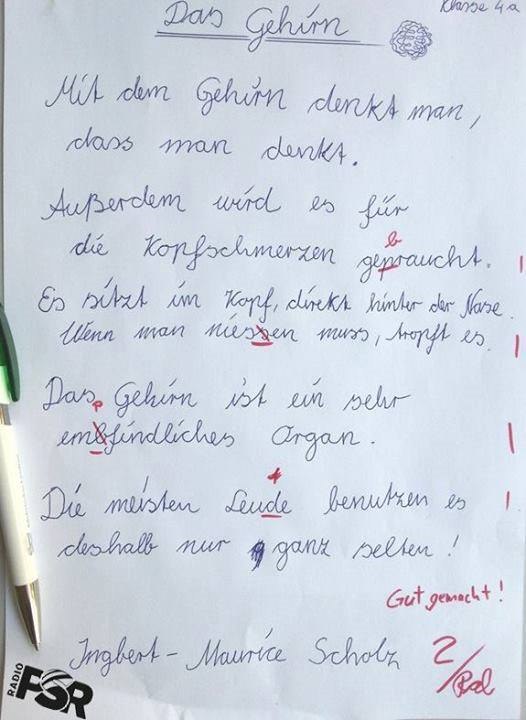 Klasse 4a
Das Gehirn
Mit dem Gehirn denkt man,
dass man denkt.
Außerdem wird es für
b
die Kopfschmerzen gepraucht. |
Es sitzt im Kopf, direkt hinter der Nase.
Wenn man niessen muss, tropft es. |
Das Gehirn ist ein sehr
p
embfindliches Organ. |
t
Die meisten Leude benutzen es |
deshalb nur ganz selten!
Gut gemacht!
Ingbert-Maurice Scholz 2/
RADIO PSR